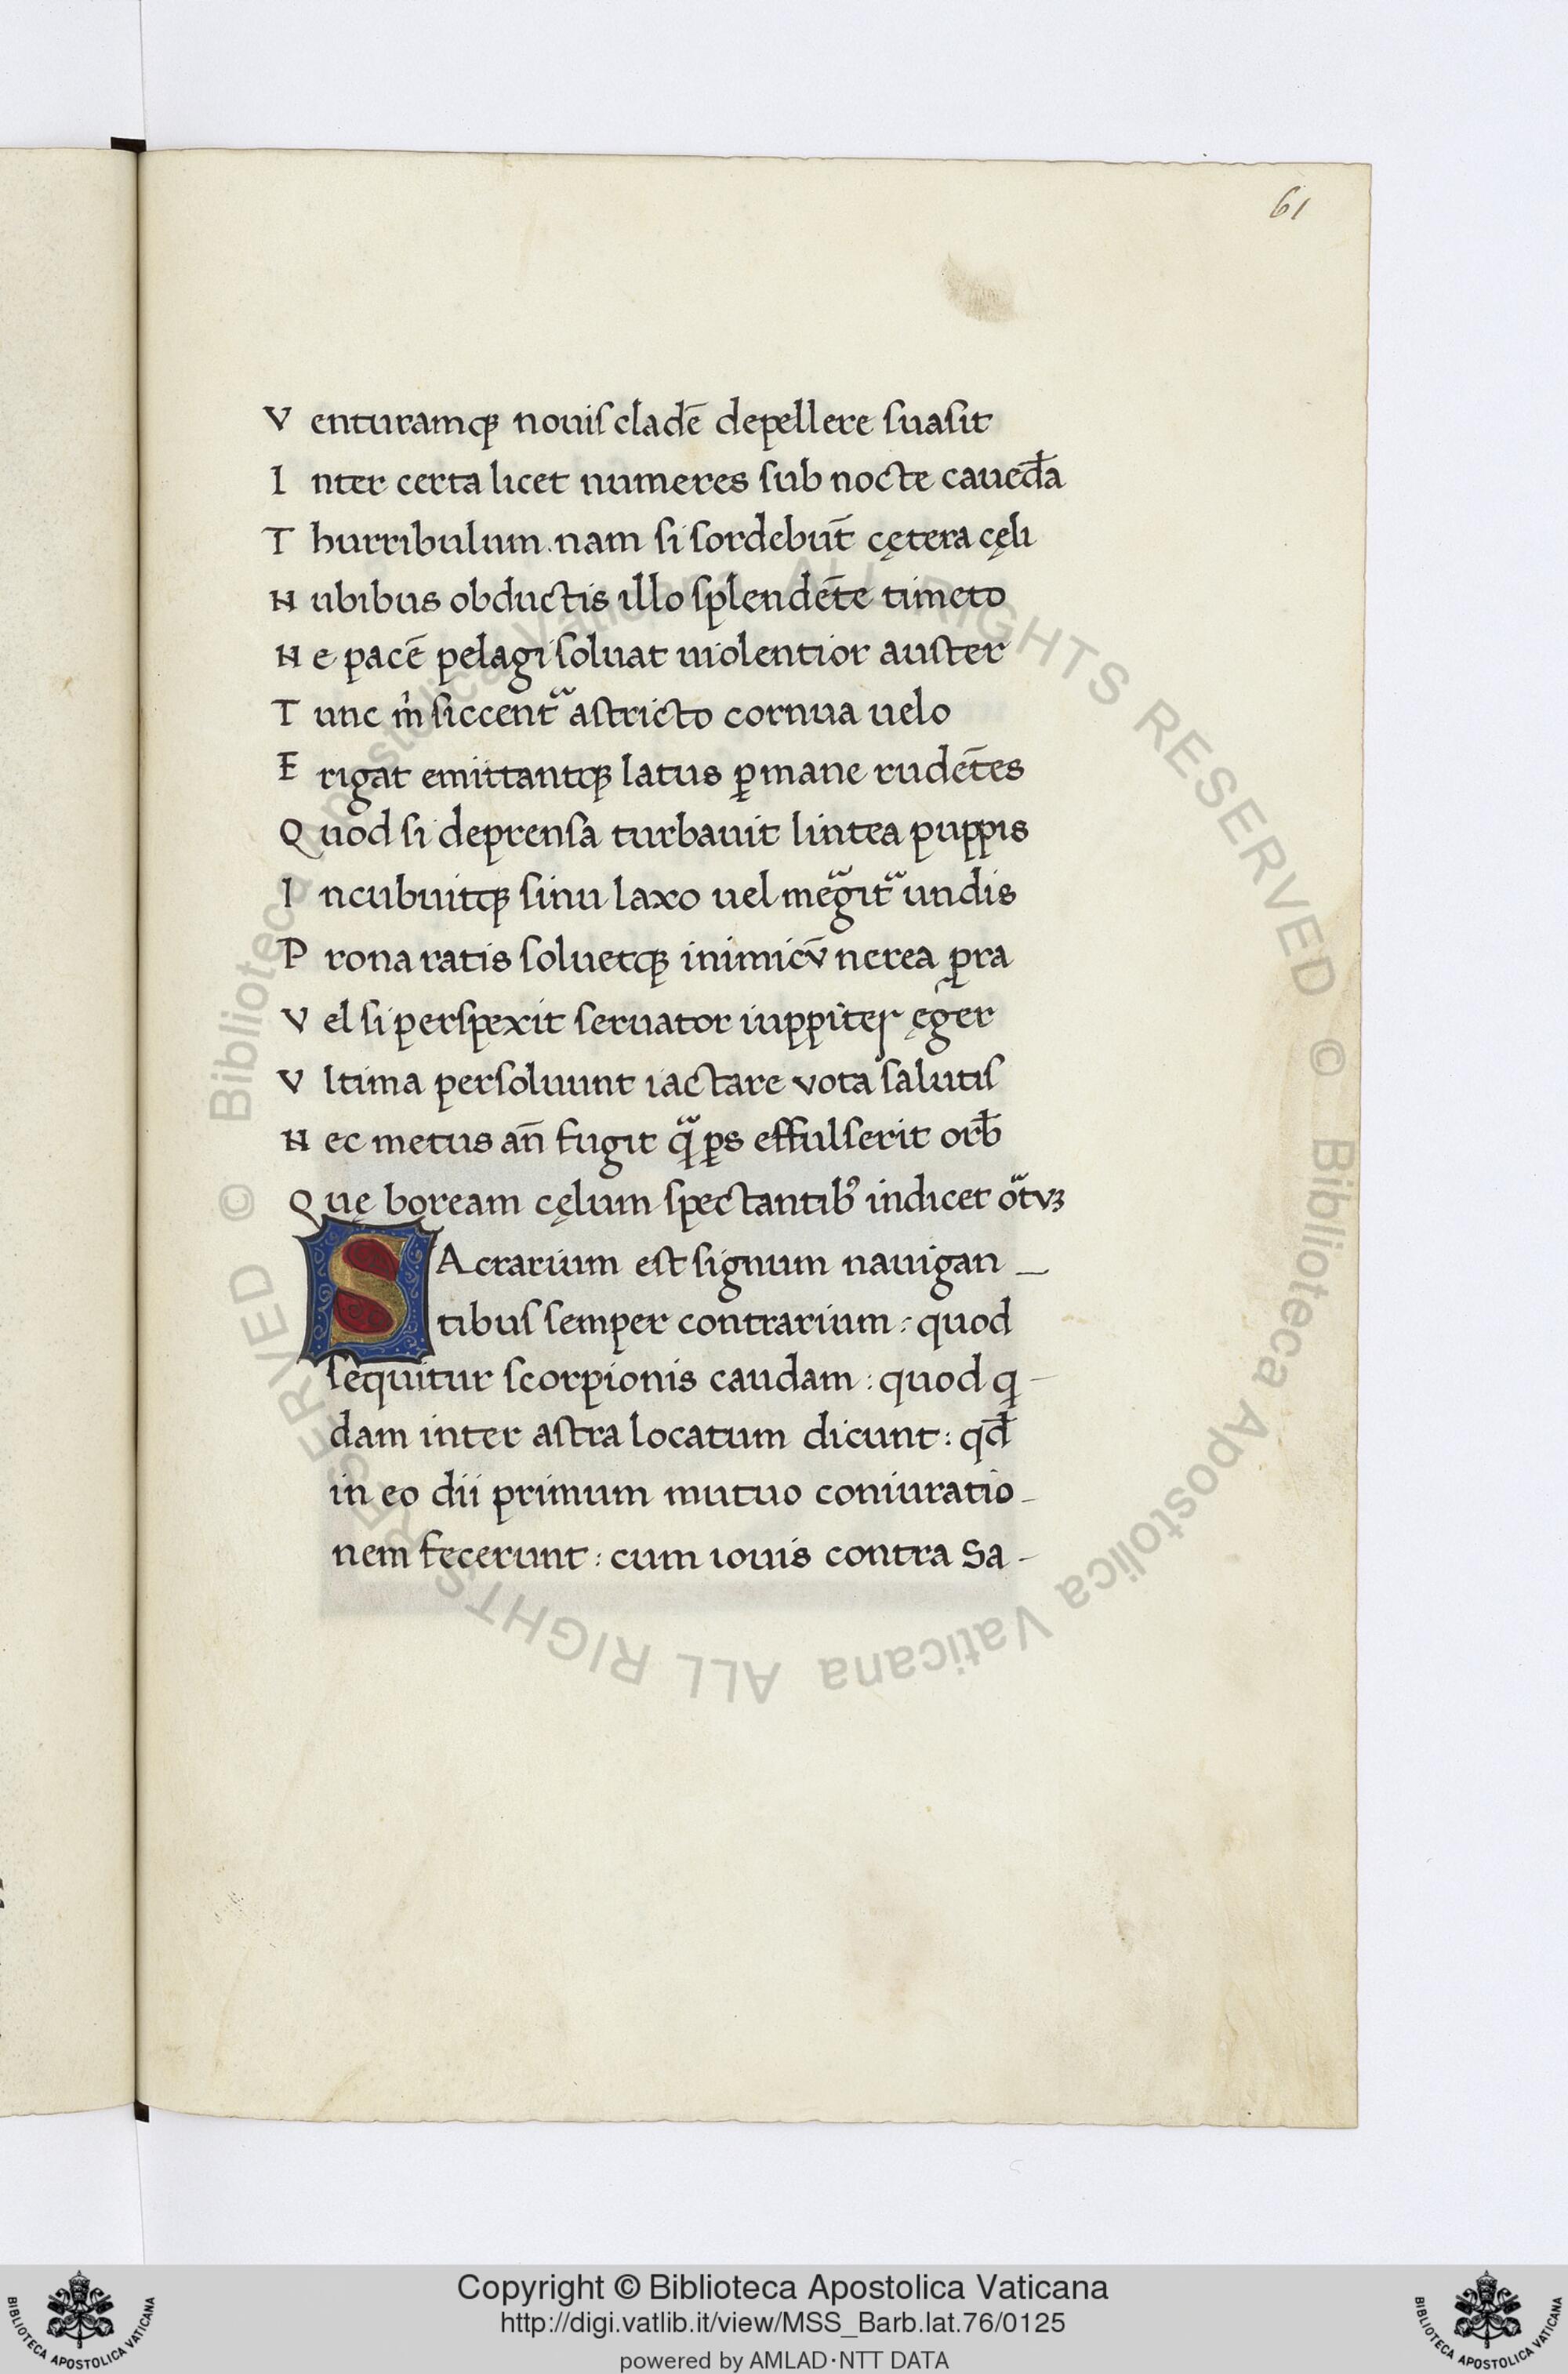 61
V enturamqꝫ nouiſ cladē depellere ſuaſit
I nter certa licet numeres ſub nocte caued̄a
T hurribulum. nam ſi ſordebūt cętera cęli
N ubibus obductis illo ſplendēte timeto
N e pacē pelagi ſoluat uiolentior auſter
T unc m̓ ſiccent᷑ aſtricto cornua uelo
E rigat emittantqꝫ latus ꝑmane rudētes
Q uod ſi deprenſa turbauit lintea puppis
I ncubuitqꝫ ſinu laxo uel meᷓgit᷑ undis
P rona ratis ſoluetqꝫ inimicv̄ nerea ꝑra
V el ſi perſpexit ſeruator iuppiter ęger
V ltima perſoluunt iactare vota ſalutiſ
N ec metus an̄ fugit qᷓ ꝑs effulſerit orb̄
Q uę boream cęlum ſpectantibꝰ indicet oᷓtvꝫ
SAcrarium eſt ſignum nauigan_
tibuſ ſemper contrarium : quod
ſequitur ſcorpionis caudam : quod q-
dam inter aſtra locatum dicunt : qd̄
in eo dii primum mutuo coniuratio-
nem fecerunt : cum iouis contra Sa-
© Biblioteca Apostolica Vaticana ALL RIGHTS RESERVED © Biblioteca Apostolica Vaticana ALL RIGHTS RESERVED
Copyright © Biblioteca Apostolica Vaticana
http://digi.vatlib.it/view/MSS_Barb.lat.76/0125
powered by AMLAD·NTT DATA
BIBLIOTECA APOSTOLICA VATICANA
BIBLIOTECA APOSTOLICA VATICANA